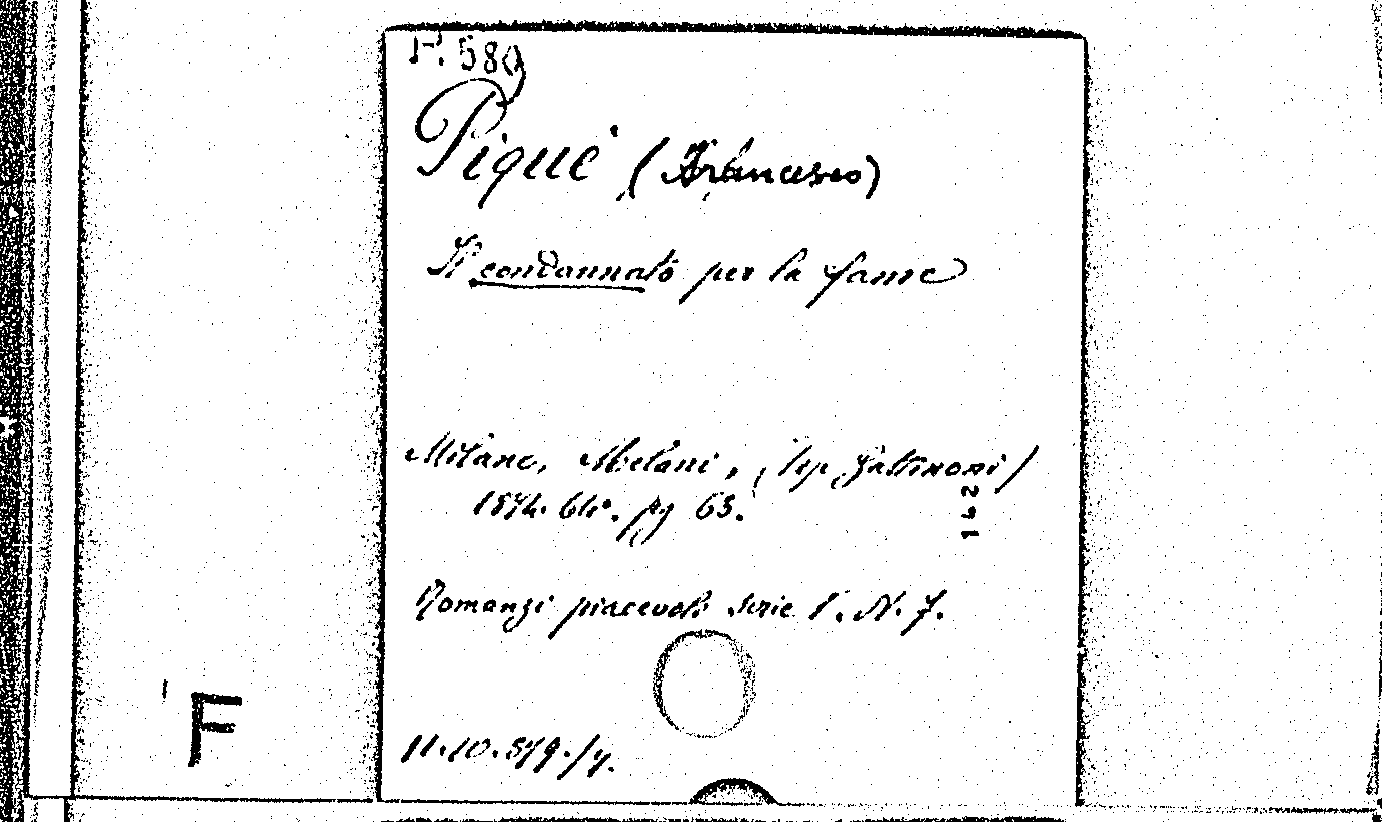 P. 580
Piquè (Francesco)
Il condannato per la fame
Milano, Melani, (tip Gattinoni)
1874. 64°. pg 63.
142
Romanzi piacevoli Serie 1ª. N. 7.
F
11.10.579./7.